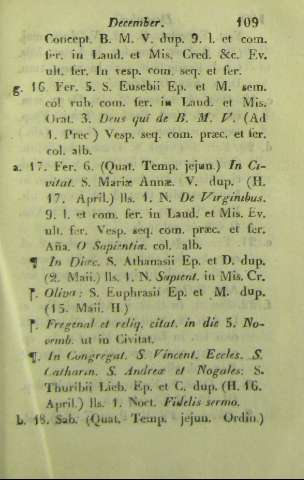 December. 109
Concept. B. M. V. dup. 9. l. et com.
fer. in Laud. et Mis. Cred. &c. Ev.
ult. fer. In vesp. com. seq. et fer.
g. 16 Fer. 5. S. Eusebii Ep. et M. sem.
col rub. com. fer. in Laud. et Mis.
Orat. 3. Deus qui de B. M. V. (Ad
1. Prec.) Vesp. seq. com. præc. et fer.
col. alb.
a. 17. Fer. 6. (Quat. Temp. jejun.) In Ci-
vitat. S. Mariæ Annæ. V. dup. (H.
17. April.) lls. 1. N. De Virginibus.
9. l. et com. fer. in Laud. et Mis. Ev.
ult. fer. Vesp. seq. com. præc. et fer.
Aña. O Sapientia. col. alb.
¶ In Diæc. S. Athanasii Ep. et D. dup.
(2. Maii.) lls. 1. N. Sapient. in Mis. Cr.
¶. Oliva: S. Euphrasii Ep. et M. dup.
(15. Maii. H.)
¶. Fregenal et reliq. citat. in die 5. No-
vemb. ut in Civitat.
¶. In Congregat. S. Vincent. Eccles. S.
Catharin. S. Andreæ et Nogales: S.
Thuribii Lieb. Ep. et C. dup. (H. 16.
April.) lls. 1. Noct. Fidelis sermo.
b. 18. Sab. (Quat. Temp. jejun. Ordin.)